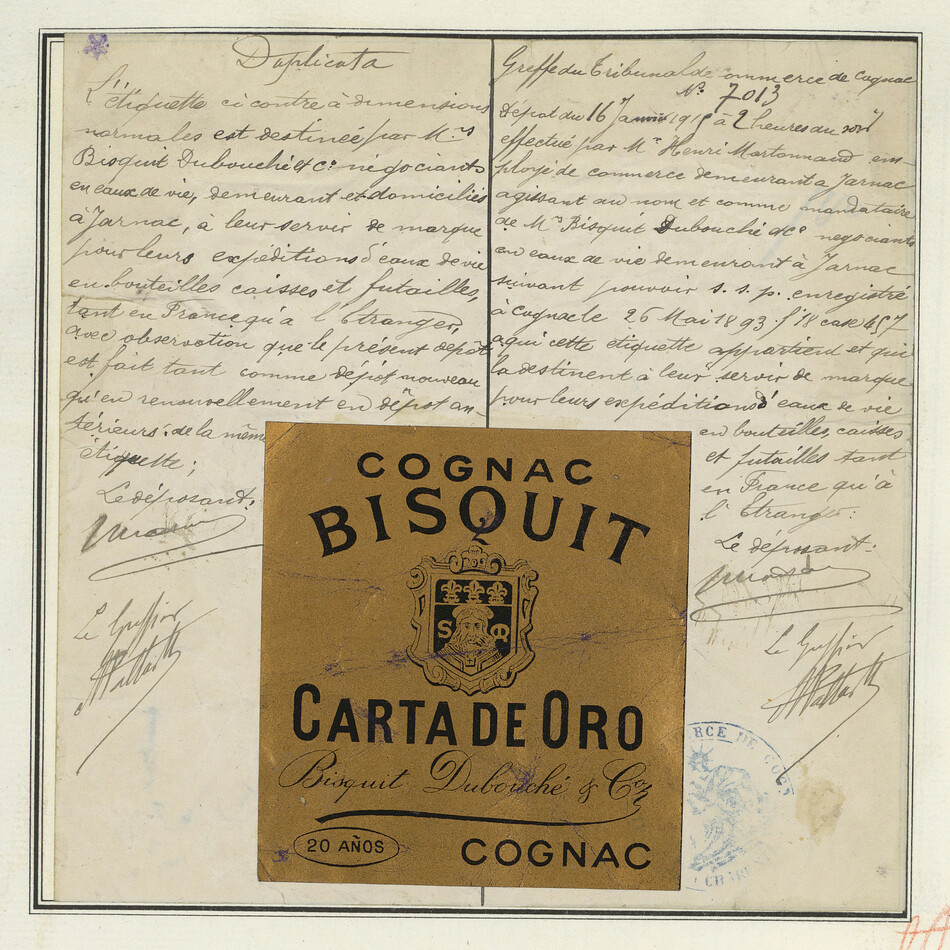 Duplicata
L'étiquette ci contre à dimensions
normales est destinée par M.rs
Bisquit Dubouché & C.o négociants
en eaux de vie, demeurant et domiciliés
à Jarnac, à leur servir de marque
pour leurs expéditions d'eaux de vie
en bouteilles caisses et futailles,
tant en France qu'à l'Etranger,
avec observation que le présent dépôt
est fait tant comme dépôt nouveau
qu'en renouvellement en dépôt an-
térieurs de la même
étiquette;
Le déposant:
Le Greffier
Greffe du Tribunal de commerce de Cognac
N.o 7013
Dépôt du 16 Janvier 191 à 2 heures du soir
effectué par M.r Henri Martonnaud em-
ployé de commerce demeurant à Jarnac
agissant au nom et comme mandataire
de M.rs Bisquit Dubouché & C.o négociants
en eaux de vie demeurant à Jarnac
suivant pouvoir s. s. p. enregistré
à Cognac le 26 Mai 1893 f.o 18 case 457
à qui cette étiquette appartient et qui
la destinent à leur servir de marque
pour leurs expéditions d'eaux de vie
en bouteilles, caisses
et futailles tant
en France qu'à
l'Etranger:
Le déposant:
Le Greffier
COGNAC
BISQUIT
S
CARTA DE ORO
Bisquit Dubouché & Co
20 AÑOS
COGNAC
RCE DE COGN
CHAR